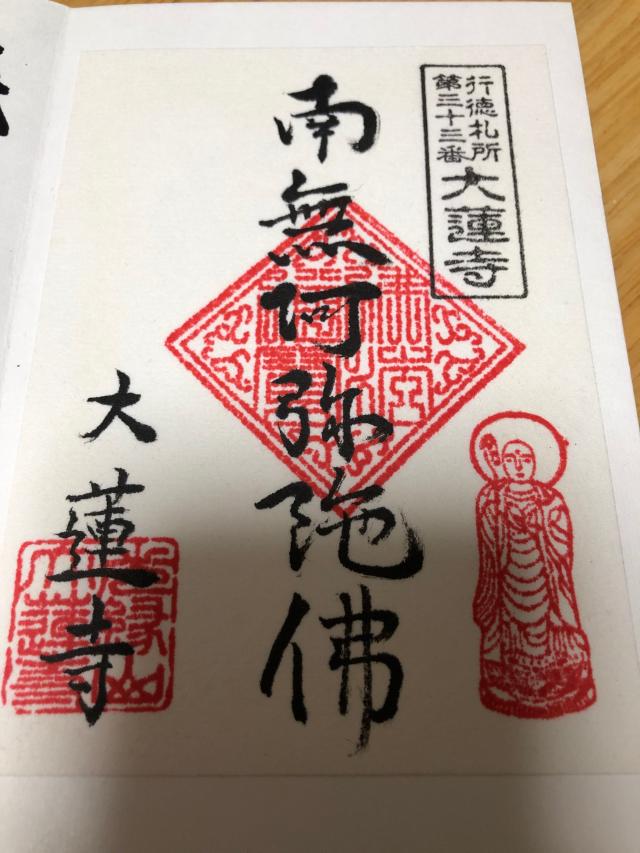 行徳札所
第三十三番
大蓮寺
南無阿弥陀佛
大蓮寺